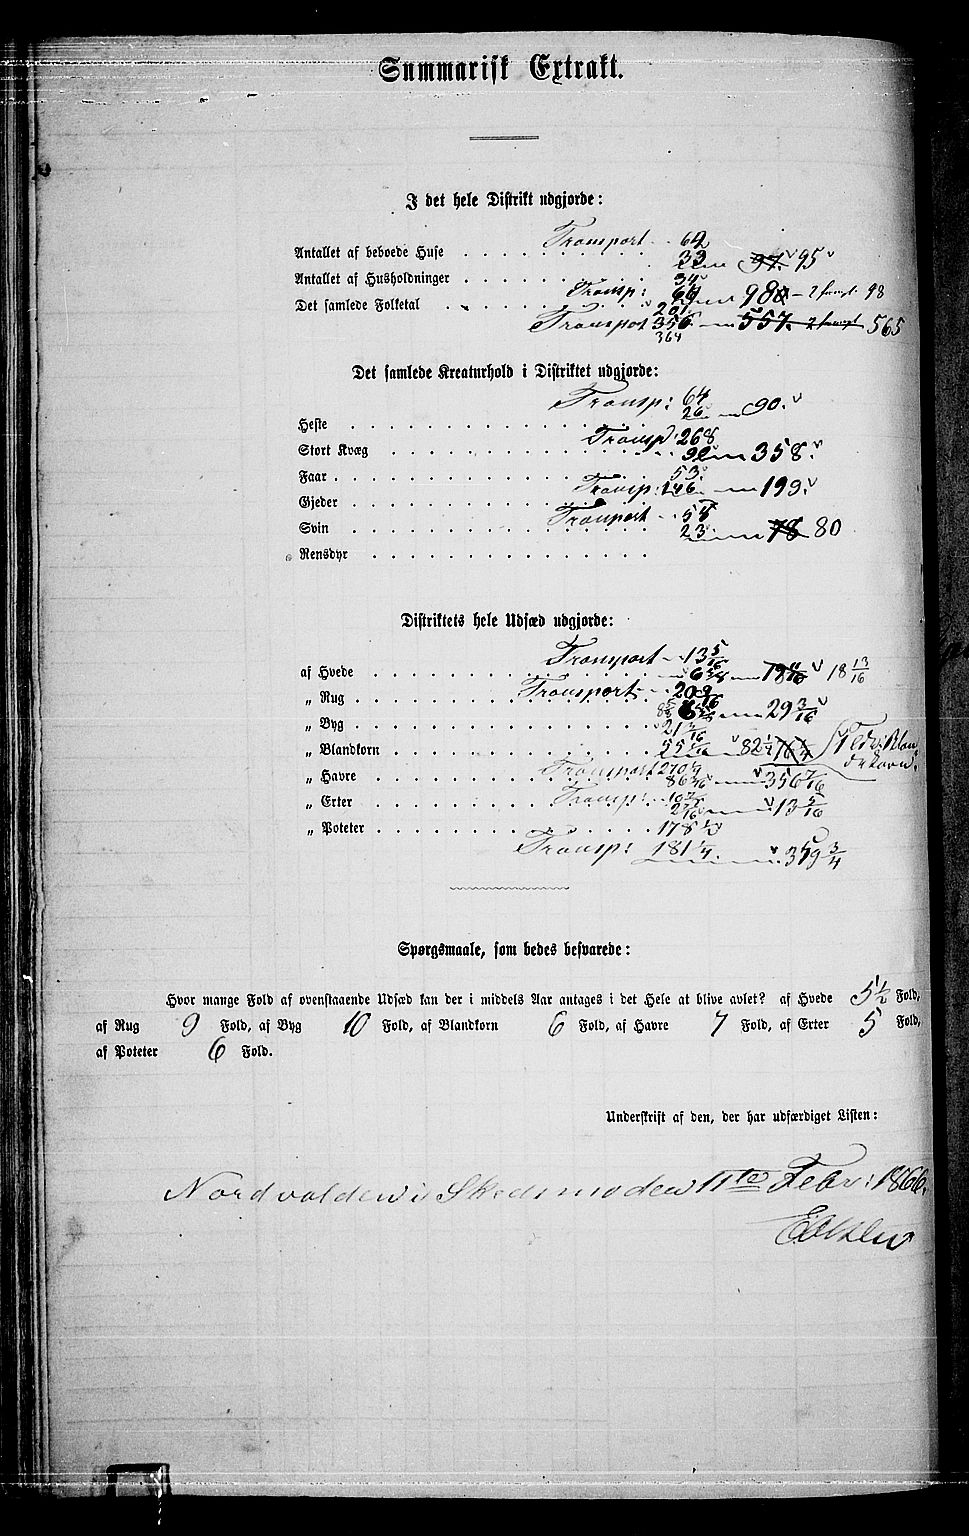 Summarisk Extrakt.
I det hele Distrikt udgjorde:
Transport 62
Antallet af beboede Huse 33 97. 95
Antallet af Husholdninger 34
Transp: 64 98 98
Det samlede Folketal 201
Transport 356 557. 565
364
Det samlede Kreaturhold i Distriktet udgjorde:
Transp: 64
Heste 26 90.
Transp 268
Stort Kvæg 90 358.
Faar 53.
Transp: 146 199.
Gjeder
Transport 55
Svin 23 78 80
Rensdyr
Distriktets hele Udsæd udgjorde:
Transport 13 5/16
af Hvede 18 13/16
Transport
„ Rug 29 3/16
„ Byg 21 3/16
„ Blandkorn 55 1/16 82 1/4
Transport 270 1/4
„ Havre 86 3/16 356 7/16
Transp:
„ Erter 2 7/16 13 5/16
„ Poteter 178 1/2
Transp: 181 1/4 359 3/4
Spørgsmaale, som bedes besvarede:
Hvor mange Fold af ovenstaaende Udsæd kan der i middels Aar antages i det Hele at blive avlet? af Hvede 5 1/2 Fold,
af Rug 9 Fold, af Byg 10 Fold, af Blandkorn 6 Fold, af Havre 7 Fold, af Erter 5 Fold,
af Poteter 6 Fold.
Underskrift af den, der har udfærdiget Listen:
Nordvolden i Skedsmo den 11te Febr: 1866.